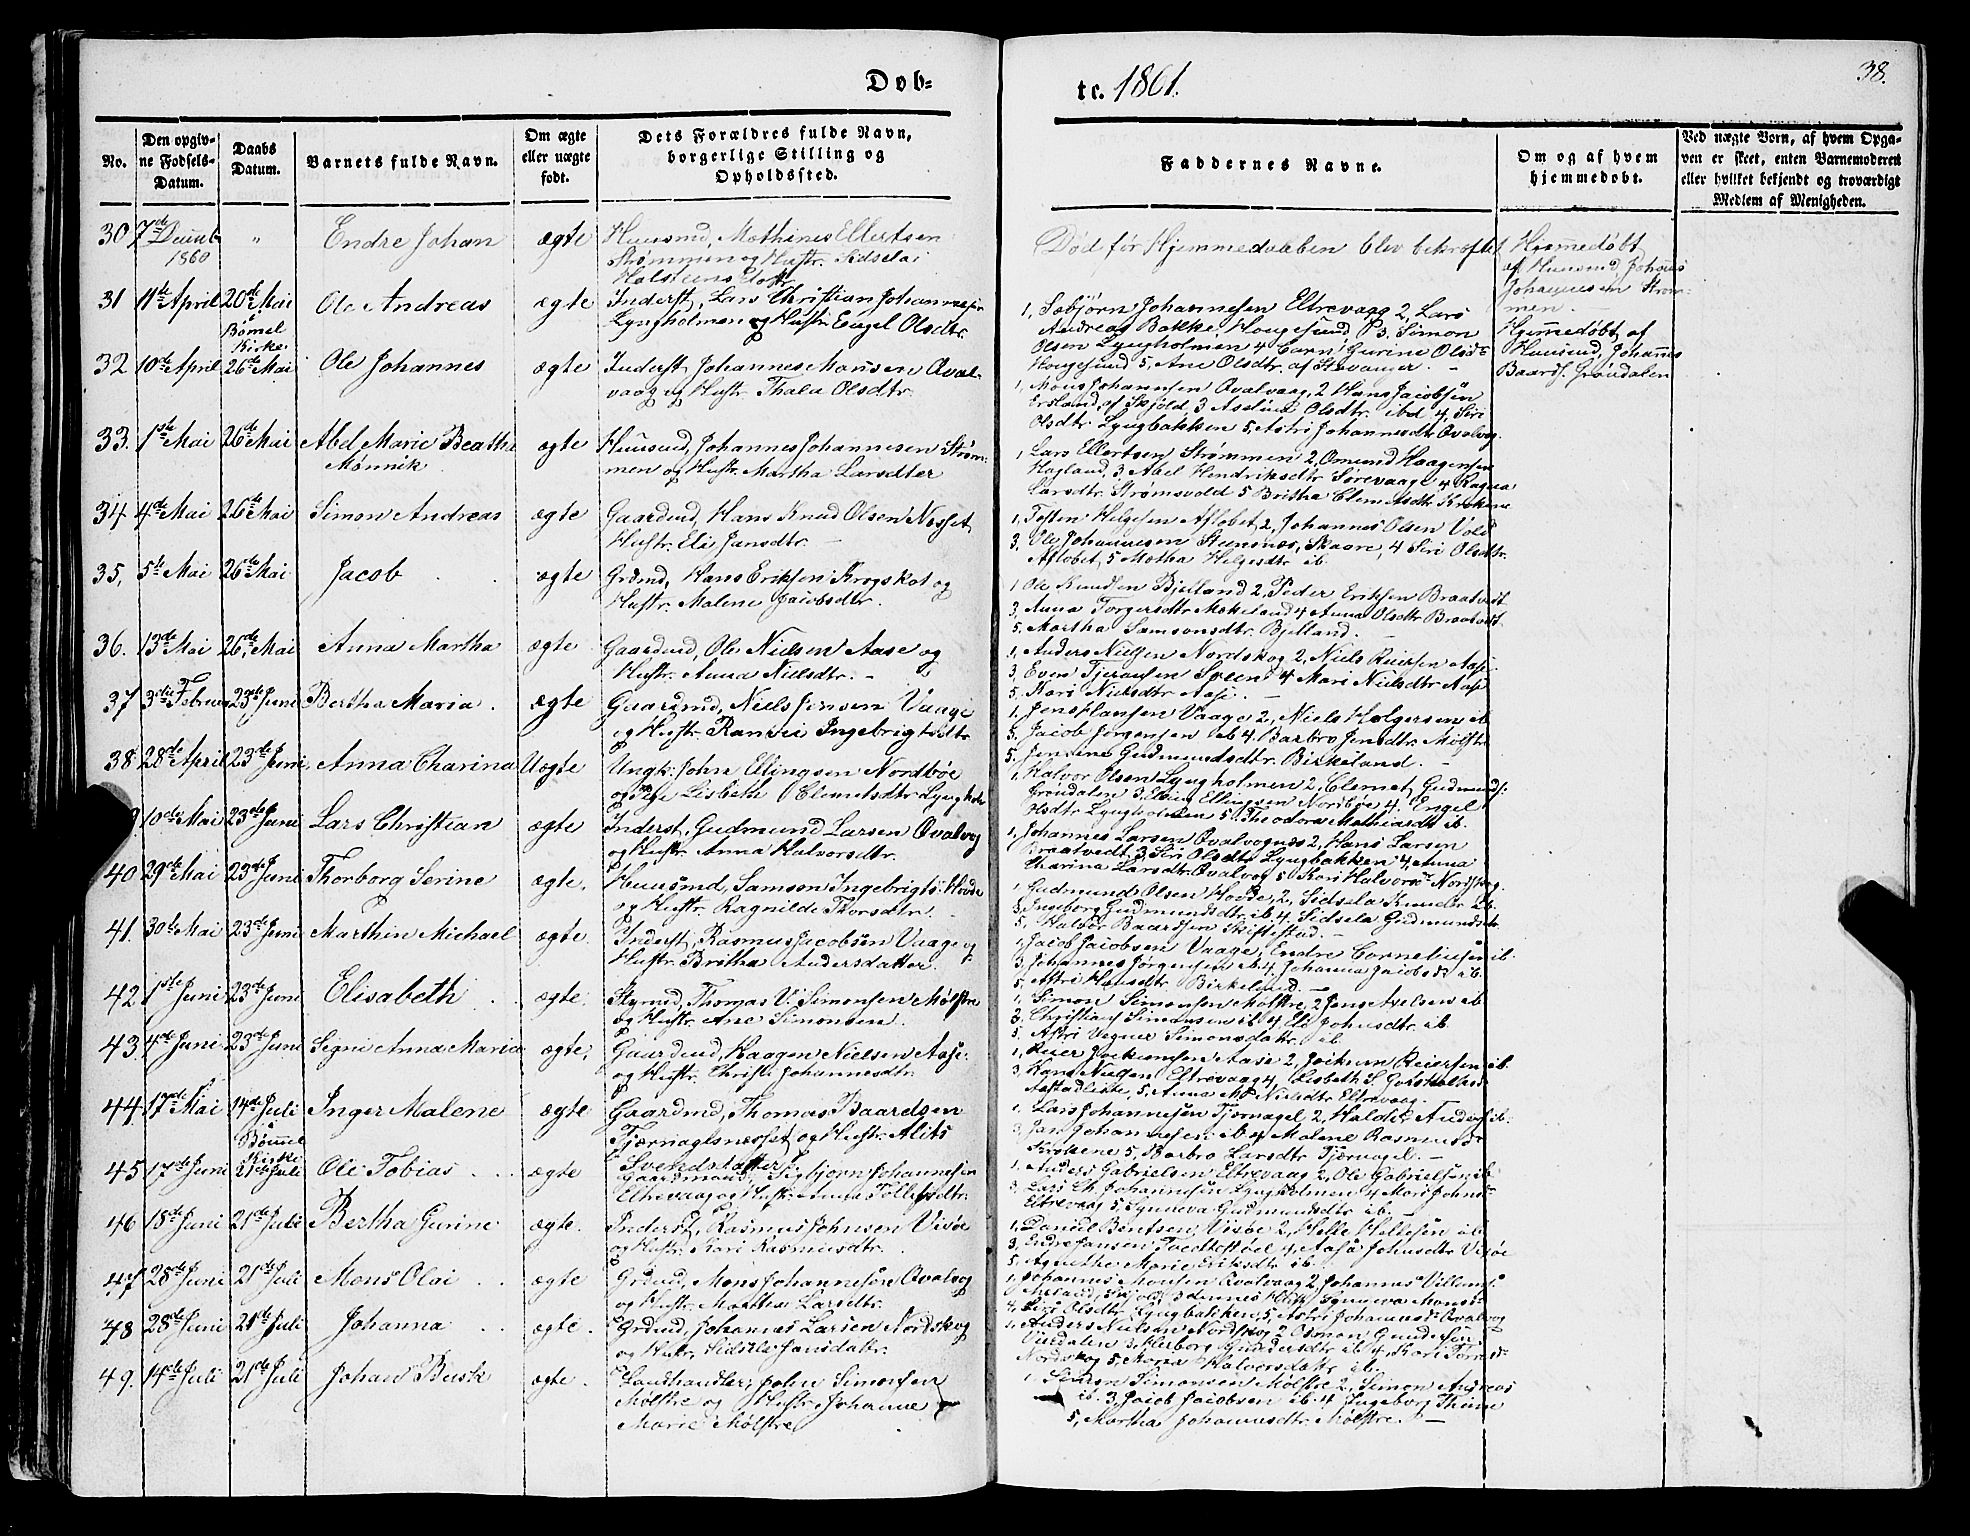 Dob=
te. 1861.
38.
No.
Den opgiv=
ne Fødsels=
Datum.
Daabs
Datum.
Barnets fulde Navn.
Om ægte
eller uægte
født.
Dets Forældres fulde Navn,
borgerlige Stilling og
Opholdssted.
Faddernes Navne.
Om og af hvem
hjemmedøbt.
Ved uægte Born, af hvem Opga=
ven er skeet, enten Barnemoderen
eller hvilket bekjendt og troværdigt
Medlem af Menigheden.
30 7de Decemb 1860 " Endre Johan ægte Huusmd, Mathines Ellertsen
Strømmen og Hustr. Sidsela
Halsteensdatr
Død før Hjemmedaaben blev bekræftet
Hjemmedøbt
af Huusmd, Johans
Johannesen Strøm-
men.
31 11te April 20de Mai i Bömel Kirke. Ole Andreas ægte Inderst, Lars Christian Johannesen
Lyngholmen og Hustr. Engel Olsdtr.
1, Søbjörn Johannesen Eltrevaag 2, Lars
Andreas Bakke Hougesund, P 3, Simon
Olsen Lyngholmen 4 Carn Gurine Olsd=
Hougesund 5, Ane Olsdtr. af Stavanger. -
Hjemmedøbt, af
Huusmd, Johannes
Baards. Gröndalen
32 10de April 26de Mai Ole Johannes ægte Inderst, Johannes Monsen Qval-
vaag og Hustr. Thala Olsdtr.
1, Mons Johannesen Qvalvaag, 2 Hans Jacobsen
Ersland, af Skjold 3 Asseline Olsdtr. ibd 4, Siri
Olsdtr Lyngbakken 5, Astri Johannesdtr Qvalvog.
33. 1ste Mai 26de Mai Abel Marie Beathe
Mönnik ægte Huusmd, Johannes Johannesen Strøm-
men og Hustr. Martha Larsdtter
1, Lars Ellertsen Strømmen 2, Omund Haagensen
Hagland, 3 Abel Hendriksdtr Sørevaage 4 Ragna
Larsdtr. Strømsvold 5 Britha Clemetsdtr Krokene
34 4de Mai 26de Mai Simon Andreas ægte Gaardmd, Hans Knud Olsen Nesset,
Hustr. Eli Jansdtr. -
1, Tosten Helgesen Aflobet, 2, Johannes Olsen Vold
3. Ole Johannesen Steensnes, Skaan, 4 Siri Olsdtr.
Aflobet, 5 Martha Helgesdtr ib.
35, 5te Mai 26de Mai Jacob ægte Grdmd, Hans Eriksen Krogskot og
Hustr. Malene Jacobsdtr.
1 Ole Knudsen Bjelland 2, Peder Eriksen Braatvedt
3, Anna Torgersdtr Mækeland 4 Anna Olsdtr Braatvedt.
5, Martha Samsonsdtr. Bjelland. -
36. 13de Mai 26de Mai Anna Martha ægte Gaardmd, Ole Nielsen Aase og
Hustr. Anna Nielsdtr. -
1, Anders Nielsen Nordskog 2, Niels Reiersen Aase.
3, Even Tjeransen Speen 4 Mari Nielsdtr Aase
5, Kari Nielsdtr Aase. -
37 3die Februar 23de Juni Bertha Maria. ægte Gaardmd, Niels Jensen Vaage
og Hustr. Randvei Ingebrigtsdtr.
1. Jens Hansen Vaage 2, Niels Holgersen ib.
3. Jacob Jörgensen ib 4. Barbro Jensdtr. Mölstr.
5. Jensine Gudmundsdtr. Birkeland. -
38. 28de April 23de Juni Anna Charina Uægte Ungk. John Ellingsen Nordböe
og Pige Lisbeth Clemetsdtr Lyngholm
1, Halvor Olsen Lyngholmen 2, Clemet Gudmunds.
Gröndalen 3, Elling Ellingsen Nordböe 4. Engel
Olsdtr Lyngholmen 5. Theodora Mathiasdtr ib.
9 10de Mai 23de Juni Lars Christian ægte Inderst, Gudmund Larsen Qvalvog
og Hustr. Anna Halvorsdtr.
1, Johannes Larsen Qvalvognes 2, Hans Larsen
Braatvedt, 3, Siri Olsdtr. Lyngbakken 4, Anna
Charina Larsdtr. Qvalvog 5 Kari Halvorsdr Nordskog.
40 29de Mai 23de Juni Thorborg Serine ægte. Huusmd, Samson Ingebrigts. Hovde
og Hustr. Ragnilde Thorsdtr.
1, Gudmund Olsen Hovde, 2, Sidsela Knudsdtr ib.
3, Ingeborg Gudmundsdtr. ib. 4. Sidsela Gudmundsdtr
5, Halvor Baardsen Skiftestad. -
41. 30te Mai 23de Juni Marthin Michael ægte. Inderst, Rasmus Jacobsen Vaage og
Hustr. Britha Andersdatter.
1, Jacob Jacobsen Vaage, Endre Corneliusen ib.
3. Johannes Jørgensen ib. 4. Johanna Jacobsdr ib.
5, Astri Hansdtr. Birkeland. -
42 1ste Juni 23de Juni Elisabeth ægte. Styrmd, Thomas V. Simonsen Mölstre
og Hustr. Ane Simonsen.
1, Simon Simonsen Mölstre, 2, Jens Axelsen ib
3, Christian Simonsen ib 4, Eli Johnsdtr. ib.
5, Astri Simonsdatr. ib.
43. 4de Juni 23de Juni Signi Anna Maria ægte, Gaardmd, Haagen Nielsen Aase.
og Hustr. Christi Johannesdtr.
1, Reier Jockumsen Aase 2, Jockum Reiersen ib.
3, Hans Nielsen Eltrevaag 4, Lisbeth
5, Anna M. Nielsdtr Eltrevaag. -
44. 17de Mai 14de Juli i Bömmel Kirke Inger Malene ægte Gaardmd, Thomas Baardsen
Tjærnagelsnesset og Hustr. Alits
Svendsdatter
1, Lars Johannesen Tjernagel 2, Haldor Anders. ib.
3, Jan Johannesen ib 4 Malene Rasmusdr
Krokene 5, Barbro Larsdtr Tjernagel. -
45 17de Juni 21de Juli Ole Tobias ægte Gaardmand, Sigbjorn Johannesen
Eltrevaag og Hustr. Anna Tollefsdtr.
1, Anders Gabrielsen Eltrevaag 2, Ole Gabrielsen ib
3, Lars Ch. Johannesen Lyngholmen 4 Mari Johnsdr
Eltrevaag 5, Synneva Gudmundsdtr ib. -
46 18de Juni 21de Juli Bertha Gurine ægte. Inderst, Rasmus Johnsen Visöe
og Hustr. Kari Rasmusdtr.
1, Daniel Bentsen Visöe 2, Helle Hellesen ib.
3, Endre Jansen Tvedtestöel 4, Aasa Johnsdtr Visöe
5, Agnethe Marie Eriksdtr ib.
47 28de Juni 21de Juli Mons Olai ægte Grdmd, Mons Johannesen Qvalvog
og Hustr. Martha Larsdtr.
1, Johannes Monsen Qvalvaag 2, Johannes Villums.
Skjold 3 Synneva Monsdr
4, Siri Olsdtr Lyngbakken, 5, Astri Johannesdr Qvalvog
48 28de Juni 21de Juli Johanna ægte. Grdmd, Johannes Larsen Nordskog
og Hustr. Sidsele Jansdattr.
1, Anders Nielsen Nordskog 2 Osmon Gundersen
Viredalen 3, Herborg Gundersdtr ib 4, Kari Torresdr
Nordskog 5, Maria Halvorsdattr ib.
49. 14de Juli 21de Juli Johan Busk ægte. Landhandler, John Simonsen
Mölstre og Hustr. Johanne
Marie Mölstre
1, Simon Simonsen Mölstre 2, Simon Andreas
ib. 3, Jacob Jacobsen ib. 4 Ingeborg Thine
5, Martha Johannesdtr. Mölstre. -